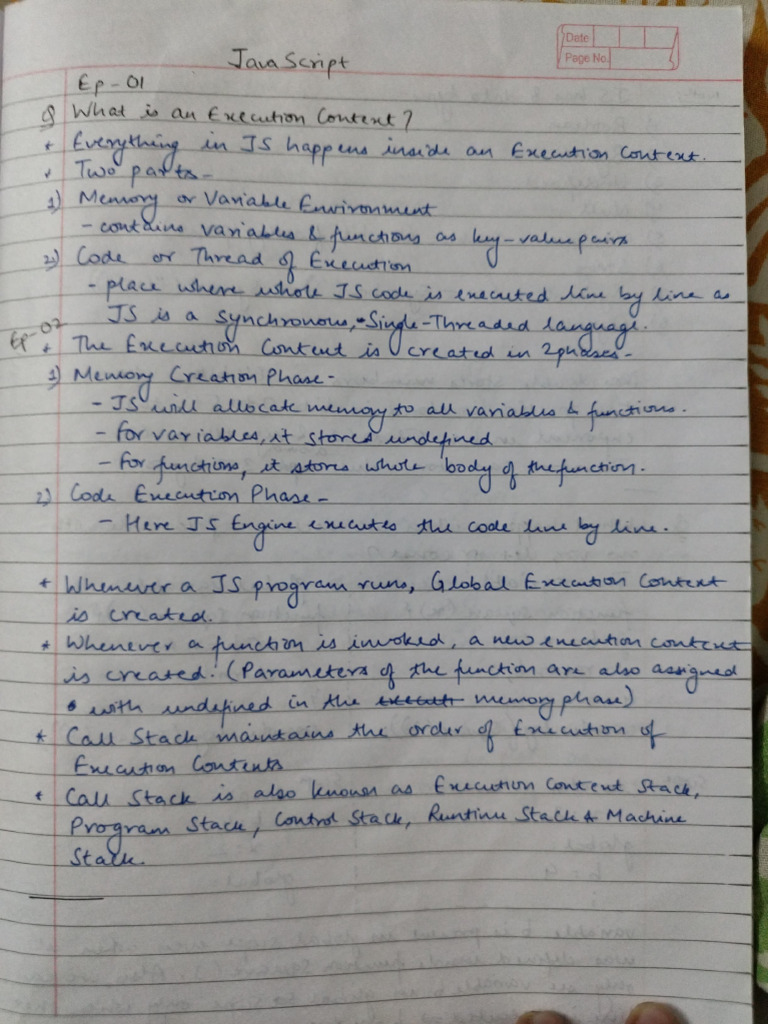 Date
Page No.
JavaScript
Ep-01
Q What is an Execution Context?
* Everything in JS happens inside an Execution Context.
* Two parts-
1) Memory or Variable Environment
- contains variables & functions as key-value pairs
2) Code or Thread of Execution
- place where whole JS code is executed line by line as
JS is a synchronous, Single-Threaded language.
Ep-02
* The Execution Context is created in 2 phases-
1) Memory Creation Phase-
- JS will allocate memory to all variables & functions.
- for variables, it stores undefined
- for functions, it stores whole body of the function.
2) Code Execution Phase-
- Here JS Engine executes the code line by line.
* Whenever a JS program runs, Global Execution Context
is created.
* Whenever a function is invoked, a new execution context
is created. (Parameters of the function are also assigned
with undefined in the memory phase)
* Call Stack maintains the order of Execution of
Execution Contexts
* Call Stack is also known as Execution Context Stack,
Program Stack, Control Stack, Runtime Stack & Machine
Stack.